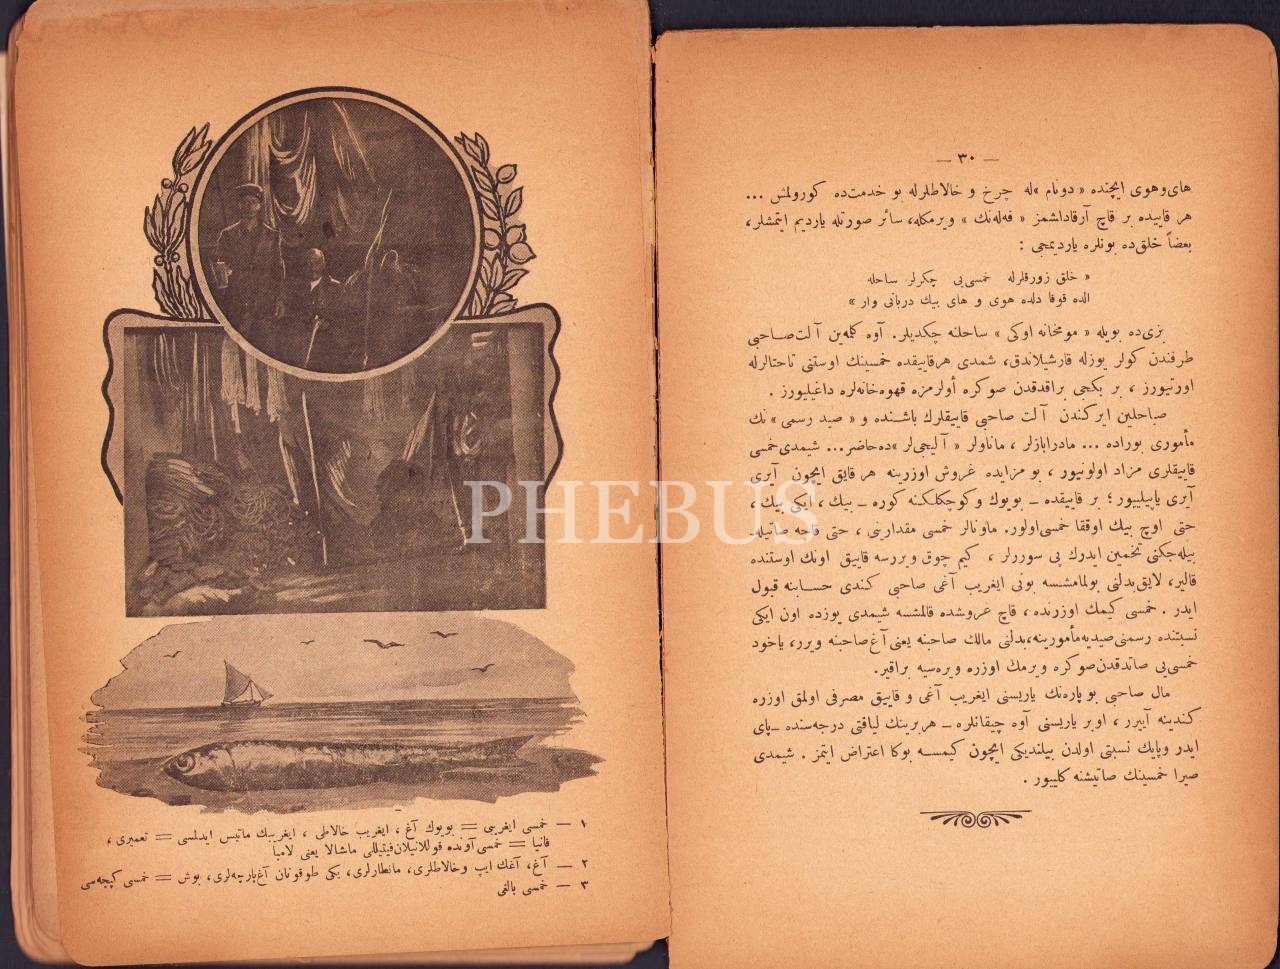 — ٣٠ —
های‌وهوی ایچنده « دونام »له چرخ و خالاطلرله بو خدمت‌ده كورولمش ...
هر قاییده بر قاچ آرقاداشمز « فه‌له‌نك » ویرمكله، سائر صورتله یاردیم ایتمشلر،
بعضاً خلق‌ده بونلره یاردیمجی :
« خلق زورقلرله خمسی‌یی چكرلر ساحله
الده قوفا دلده هوی و های بیك دربانی وار »
بزی‌ده بویله « مومخانه اوكی » ساحلنه چكدیلر. آوه كلمه‌ین آلت‌صـاحبی
طرفندن كولر یوزله قارشیلاندق، شمدی هرقاییقده خمسینك اوستنی تاحتالرله
اورتیورز ، بر بكجی براقدقدن صوكره أولرمزه قهوه‌خانه‌لره داغیلیورز .
صباحلین ایركندن آلت صاحبی قاییقلرك باشنده و « صید رسمی » نك
مأموری بوراده ... مادرابازلر ، ماناولر « آلیجی‌لر »ده‌حاضر... شیمدی‌خمسی
قاییقلری مزاد اولونیور ، بو مزایده غروش اوزرینه هر قایق ایچون آیری
آیری یاپیلییور ؛ بر قاییقده ـ بویوك وكوچكلكنه كوره ـ بیك ، ایكی بیك ،
حتی اوچ بیك اوققا خمسی‌اولور. ماونالر خمسی مقدارنی ، حتی قاچه صاتیله‌
بیله‌جكنی تخمین ایدرك پی سوررلر ، كیم چوق ویررسه قاییق اونك اوستنده
قالیر، لایق‌بدلنی بولمامشسه بونی ایغریب آغی صاحبی كندی حسـابنه قبول
ایدر . خمسی كیمك اوزرنده ، قاچ غروشده قالمشسه شیمدی یوزده اون ایكی
نسبتنده رسمنی‌صیدیه‌مأمورینه،بدلنی مالك صاحبنه یعنی آغ‌صاحبنه ویرر، یاخود
خمسی‌یی صاتدقدن‌صوكره ویرمك اوزره ویره‌سیه براقیر.
مال صاحبی بو پاره‌نك یاریسنی ایغریب آغی و قاییق مصرفی اولمق اوزره
كندینه آییرر ، اوبر یاریسنی آوه چیقانلره ـ هربرینك لیاقتی درجه‌سنده ـپای
ایدر وپایك نسبتی اولدن بیلندیكی ایچون كیمسه بوكا اعتراض ایتمز . شیمدی
صیرا خمسینك صاتیشنه كلییور .
١ — خمسی ایغریبی = بویوك آغ ، ایغریب خالاطی ، ایغریبك ماتیس ایدلمسی = تعمیری ،
فانیا = خمسی‌آونده قوللانیلان‌فیتیللی ماشالا یعنی لامبا
٢ — آغ، آغك ایپ وخالاطلری، مانطارلری، یكی طوقونان آغ‌پارچه‌لری، بوش = خمسی كپچه‌سی
٣ — خمسی بالغی
PHEBUS